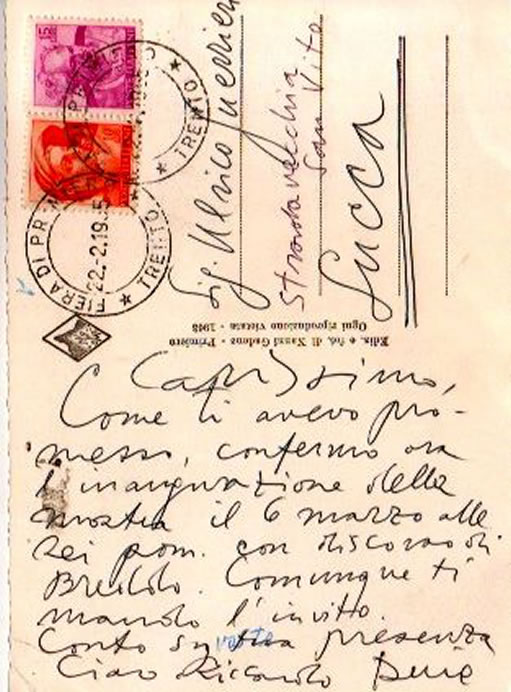 15
FIERA DI PR
22.-2.19
TRENTO
TRENTO
Sig. Ulrico Guerrieri
Strada vecchia
San Vito
Lucca
Ediz. e fot. di Nanni Gadenz - Primiero
Ogni riproduzione vietata - 1963
Carissimo,
Come ti avevo pro-
messo, confermo ora
l'inaugurazione della
mostra il 6 marzo alle
sei pom. con discorso di
Comunque ti
mando l'invito.
Conto su vostra presenza
Ciao Riccardo